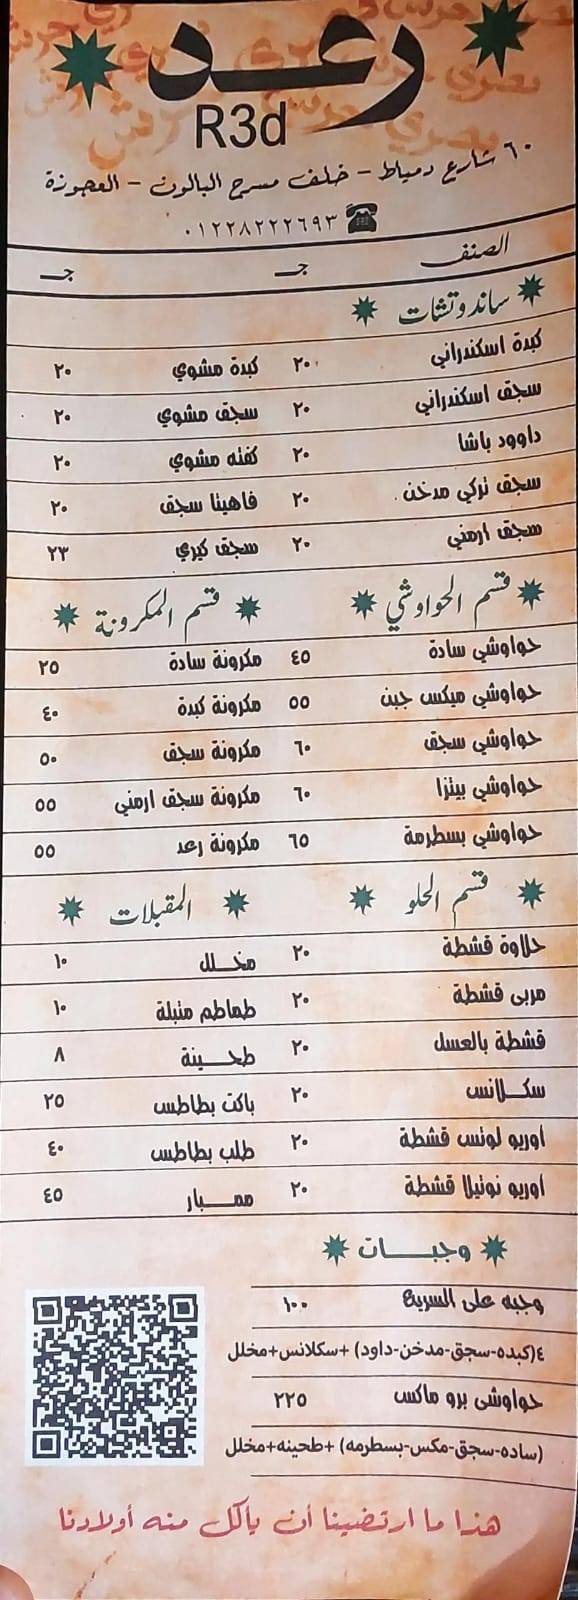 رعد
R3d
٦٠ شارع دمياط - خلف مسرح البالون - العجوزة
٠١٢٢٨٢٢٢٦٩٣
الصنف جـ جـ
ساندوتشات
كبدة اسكندراني ٢٠ كبدة مشوي ٢٠
سجق اسكندراني ٢٠ سجق مشوي ٢٠
داوود باشا ٢٠ كفته مشوي ٢٠
سجق تركي مدخن ٢٠ فاهيتا سجق ٢٠
سجق ارمني ٢٠ سجق كيري ٢٣
قسم الحواوشي قسم المكرونة
حواوشي سادة ٤٥ مكرونة سادة ٢٥
حواوشي ميكس جبن ٥٥ مكرونة كبدة ٤٠
حواوشي سجق ٦٠ مكرونة سجق ٥٠
حواوشي بيتزا ٦٠ مكرونة سجق ارمني ٥٥
حواوشي بسطرمة ٦٥ مكرونة رعد ٥٥
قسم الحلو المقبلات
حلاوة قشطة ٢٠ مخلل ١٠
مربى قشطة ٢٠ طماطم متبلة ١٠
قشطة بالعسل ٢٠ طحينة ٨
سكلانس ٢٠ باكت بطاطس ٢٥
اوريو لوتس قشطة ٢٠ طلب بطاطس ٤٠
اوريو نوتيلا قشطة ٢٠ ممبار ٤٥
وجبات
وجبه على السريع ١٠٠
٤(كبده-سجق-مدخن-داود) +سكلانس+مخلل
حواوشى برو ماكس ٢٢٥
(ساده-سجق-مكس-بسطرمه) +طحينه+مخلل
هذا ما ارتضينا أن يأكل منه أولادنا